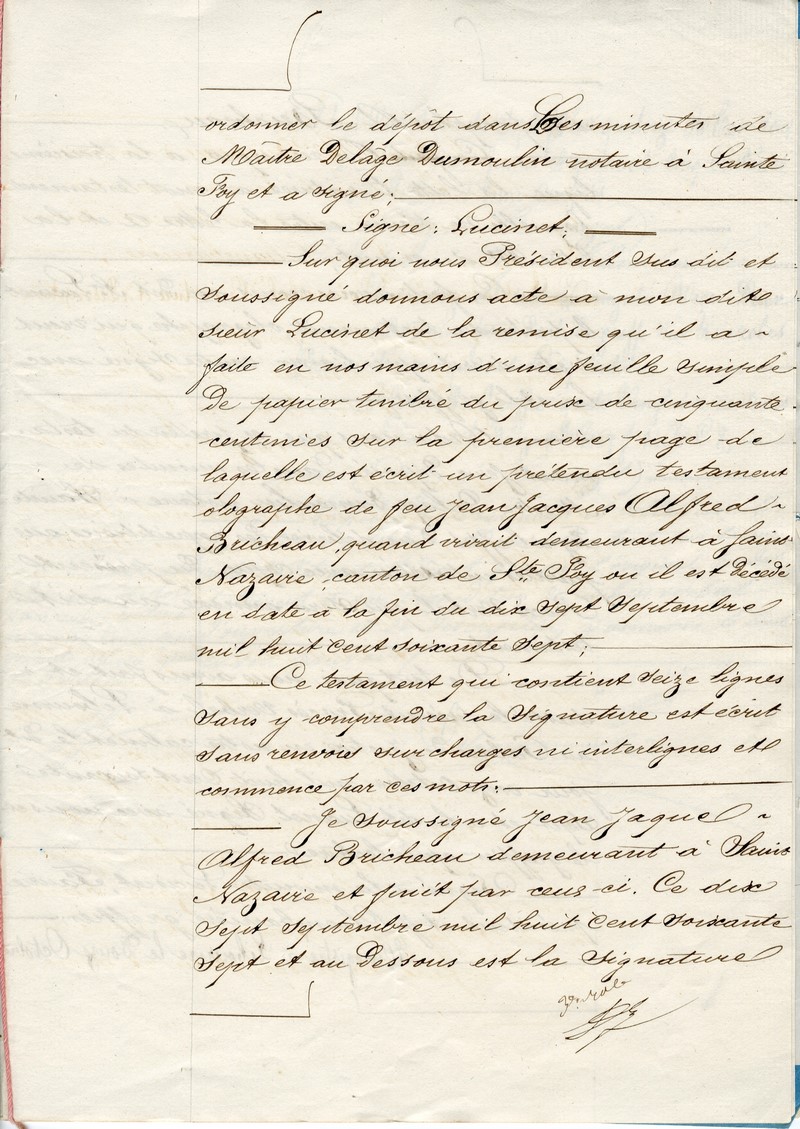 ordonner le dépôt dans Les minutes de
Maître Delage Dumoulin notaire à Sainte
Foy et a signé;
Signé: Lucinet;
Sur quoi nous Président sus dit et
soussigné donnons acte à mon dit
sieur Lucinet de la remise qu'il a
faite en nos mains d'une feuille simple
De papier timbré du prix de cinquante
centimes sur la première page de
laquelle est écrit un prétendu testament
olographe de feu Jean Jacques Alfred
Bricheau, quand vivait demeurant à Saint
Nazaire, canton de Ste Foy ou il est Décédé
en date à la fin du dix sept Septembre
mil huit cent soixante sept;
Ce testament qui contient seize lignes
sans y comprendre la signature est écrit
sans renvois surcharges ni interlignes et
commence par ces mots:
Je soussigné Jean Jaque
Alfred Bricheau demeurant à Saint
Nazaire et finit par ceux-ci. Ce dix
sept septembre mil huit Cent soixante
sept et au Dessous est la signature
3e. role